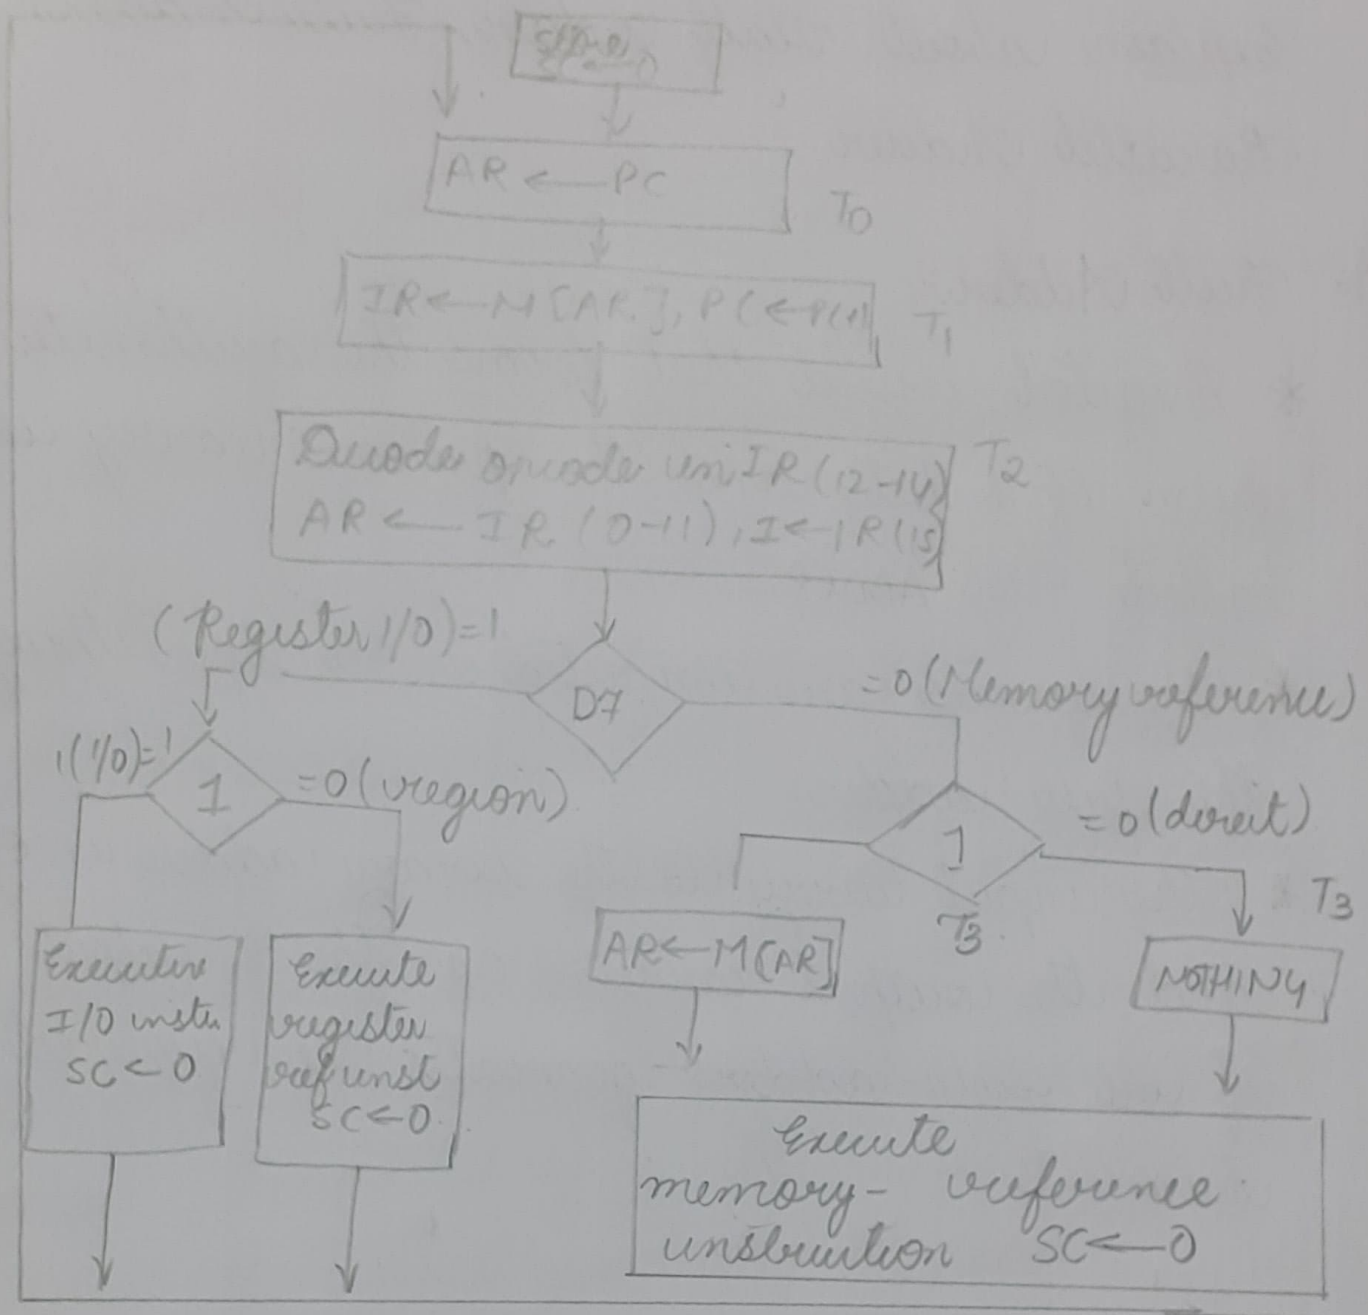 SC ← 0
AR ← PC
T0
IR ← M[AR], PC ← PC+1
T1
Decode opcode in IR (12-14)
T2
AR ← IR (0-11), I ← IR(15)
(Register I/O) = 1
D7
= 0 (Memory reference)
1 (I/O) = 1
I
= 0 (region)
1
= 0 (direct)
T3
T3
Execute
I/O instr
SC ← 0
Execute
register
ref inst
SC ← 0
AR ← M[AR]
NOTHING
Execute
memory- reference
instruction SC ← 0